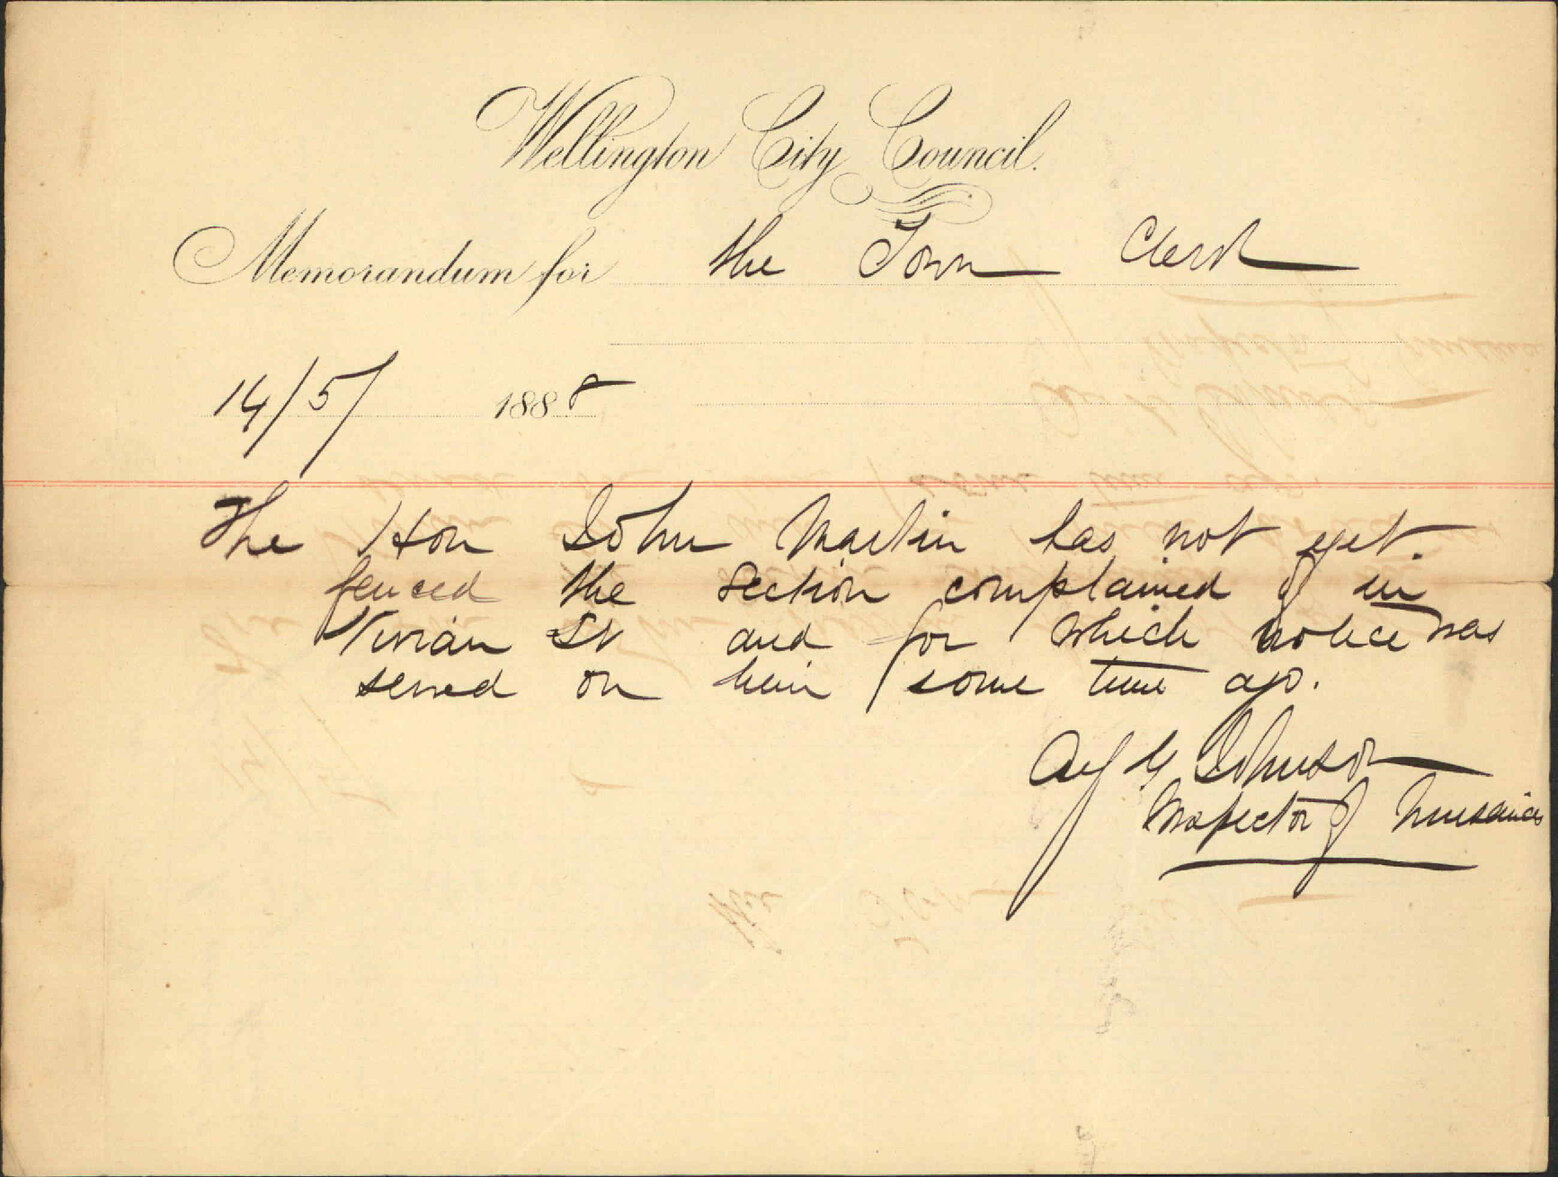 Wellington City Council.
Memorandum for the Town Clerk
14/5/ 1888
The Hon John Martin has not yet.
fenced the section complained of in
Vivian St and for which notice was
served on him some time ago.
Johnson
Inspector of Nuisances